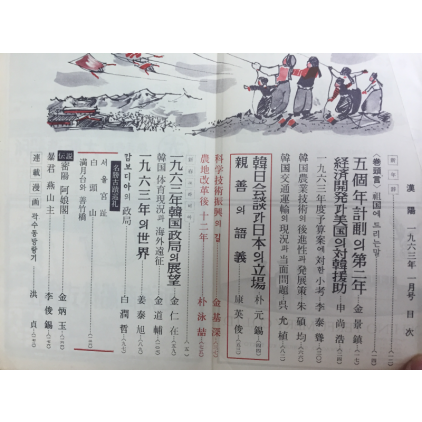 漢陽 一九六三年 一月号 目次
《巻頭言》 祖国에 드리는 말
五個年計劃의 第二年 金景鎮
経済開発과 美国의 対韓援助 申尚浩
一九六三年度予算案에 対한 小考 李泰聲
韓国農業技術의 後進性과 発展策 朱碩均
韓国交通運輸의 現況과 当面問題 呉允植
韓日会談과 日本의 立場 朴元錫
親善의 語義 康英俊
科学技術振興의 길 金基深
農地改革後 十二年 朴泳喆
一九六三年韓国政局의 展望 金仁在
韓国体育現況과 海外遠征 金道輔
一九六三年의 世界 姜泰旭
캄보디아의 政局 白潤哲
名勝古蹟巡礼
서울 宮趾
白頭山
満月台와 善竹橋
伝説 密陽 阿娘閣 金炳玉
暴君 燕山主 李俊錫
連載漫画 洪貞